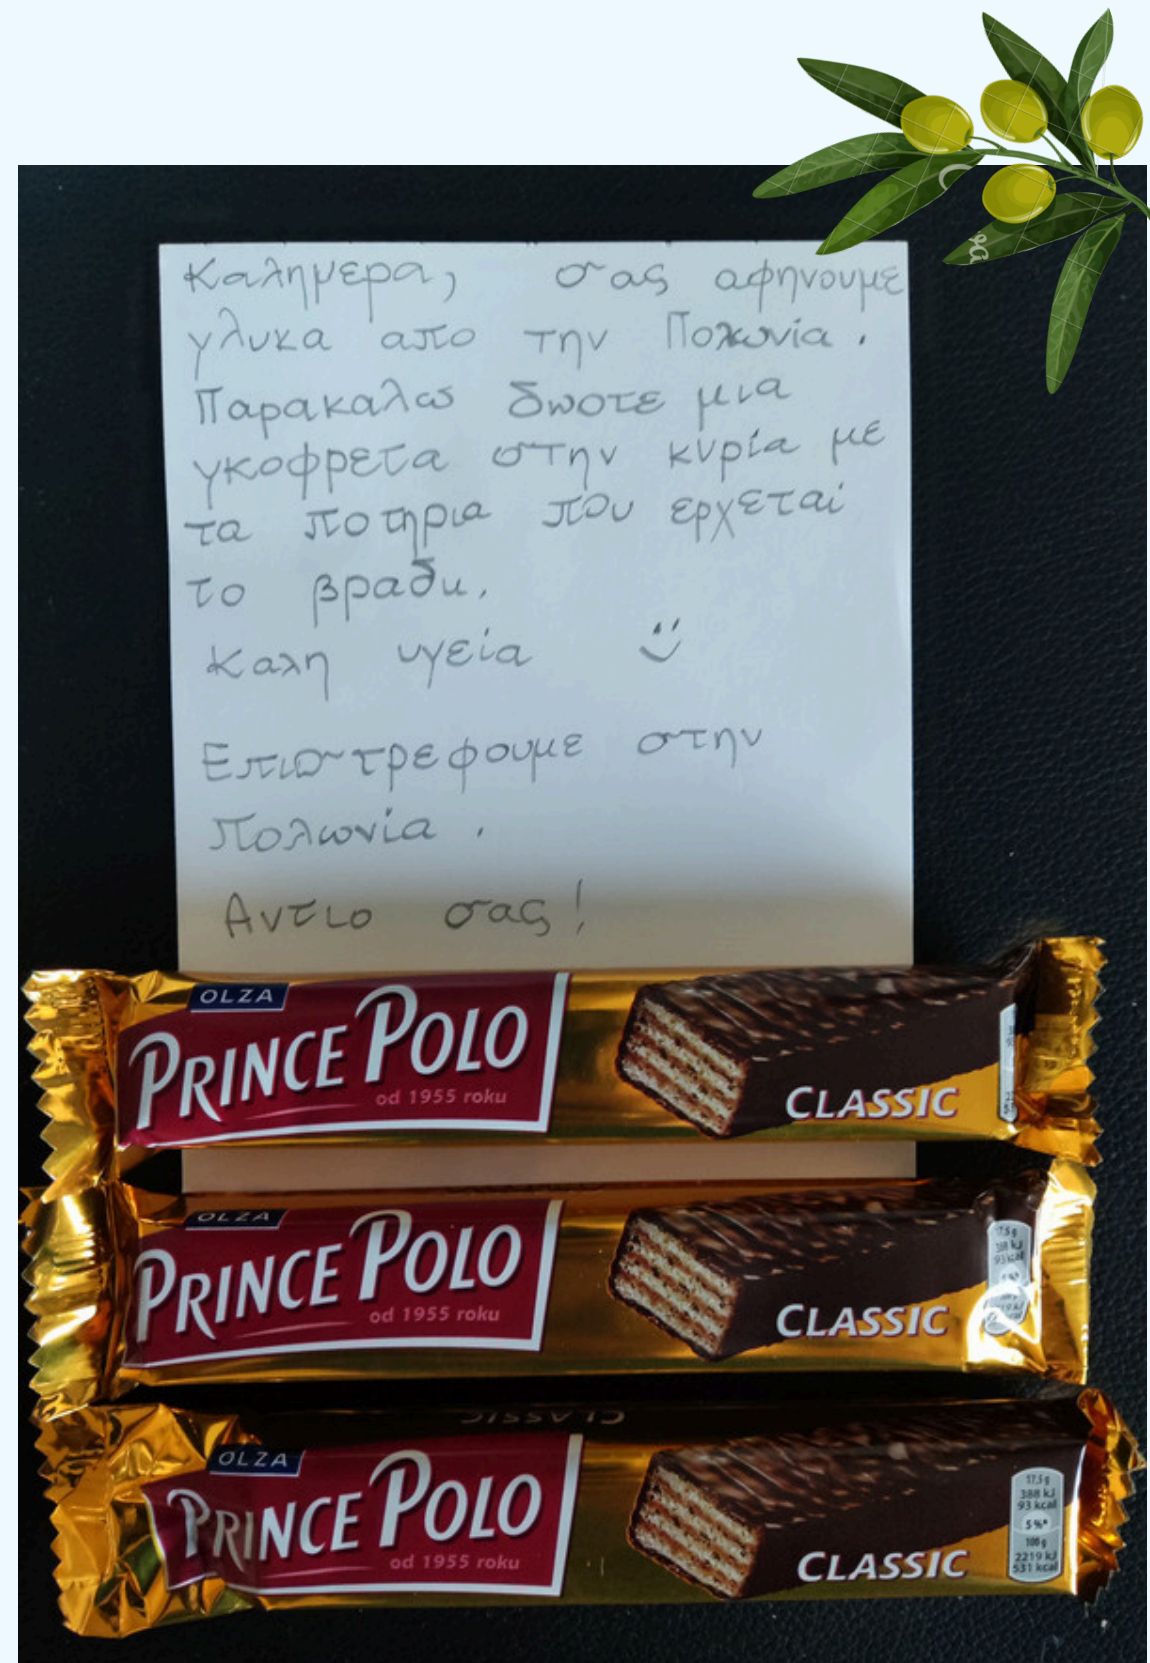 Καλημερα, σας αφηνουμε
γλυκα απο την Πολωνία.
Παρακαλω δωστε μια
γκοφρετα στην κυρία με
τα ποτηρια που ερχεταί
το βραδυ.
Καλη υγεία
Επιστρεφουμε στην
Πολωνία.
Αντιο σας!
OLZA
PRINCE POLO
od 1955 roku
CLASSIC
OLZA
PRINCE POLO
od 1955 roku
CLASSIC
17,5 g
388 kJ
93 kcal
CLASSIC
OLZA
PRINCE POLO
od 1955 roku
CLASSIC
17,5 g
388 kJ
93 kcal
5%*
100 g
2219 kJ
531 kcal